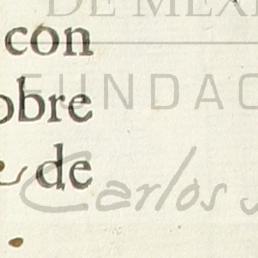 DE MEXI
con
FUNDAC
obre
de
Carlos
.